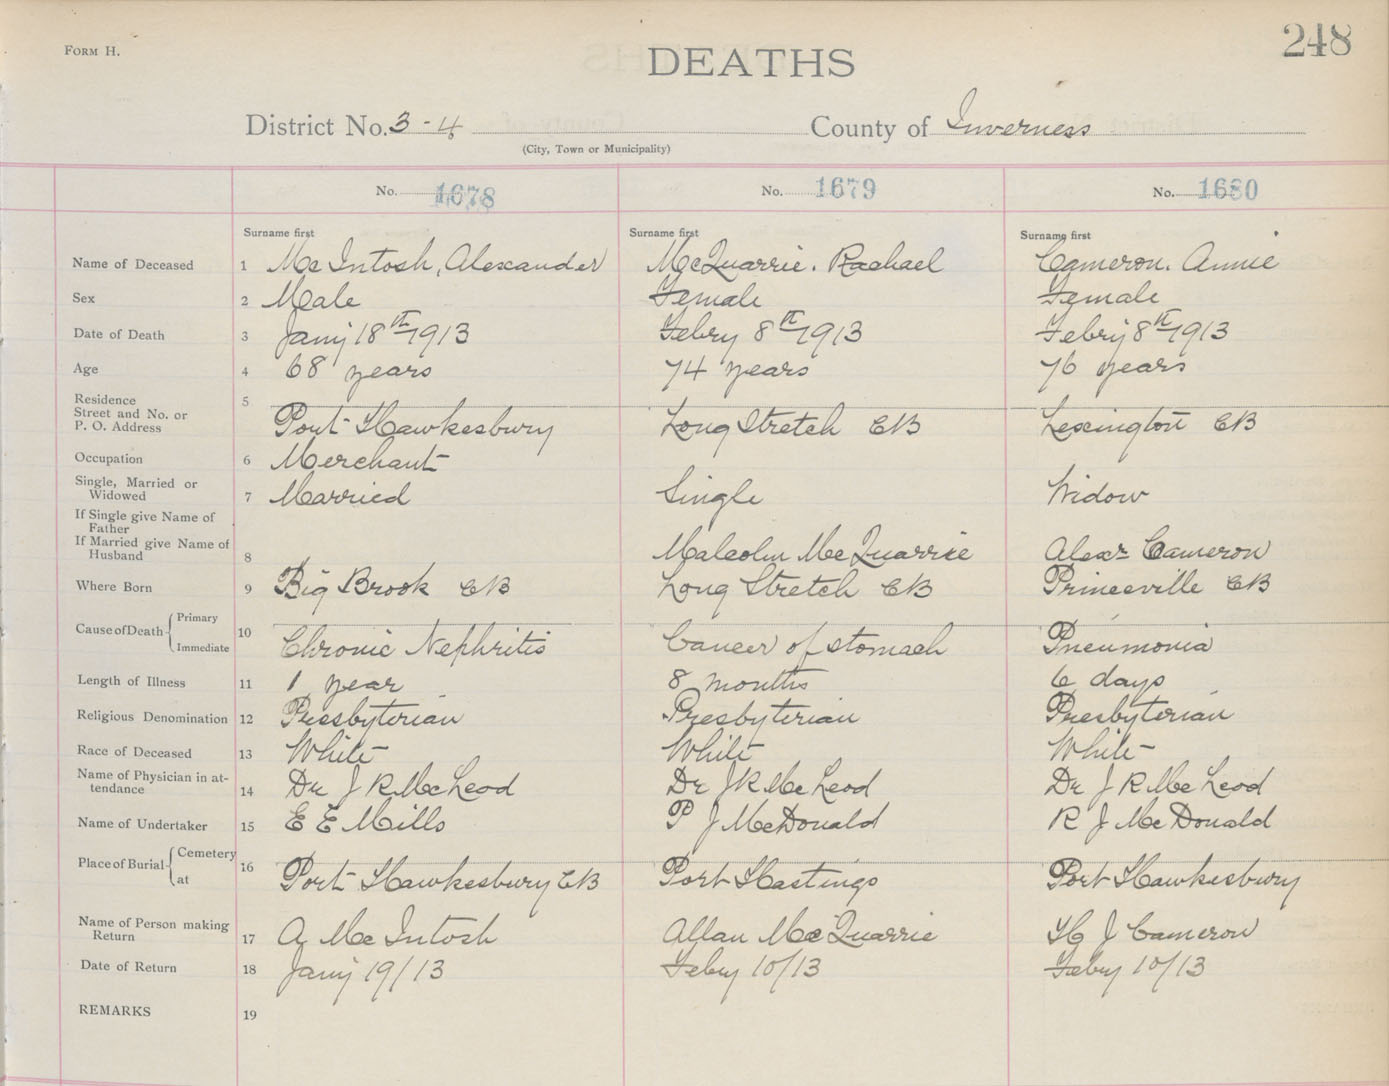 FORM H.
248
DEATHS
District No. 3-4 County of Inverness
(City, Town or Municipality)
No. 1678 No. 1679 No. 1680
Surname first Surname first Surname first
Name of Deceased 1 McIntosh, Alexander McQuarrie. Rachael Cameron. Annie
Sex 2 Male Female Female
Date of Death 3 Jany 18th 1913 Febry 8th 1913 Febry 8th 1913
Age 4 68 years 74 years 76 years
Residence 5
Street and No. or
P. O. Address Port Hawkesbury Long Stretch CB Lexington CB
Occupation 6 Merchant
Single, Married or
Widowed 7 Married Single Widow
If Single give Name of
Father
If Married give Name of
Husband 8 Malcolm McQuarrie Alexr Cameron
Where Born 9 Big Brook CB Long Stretch CB Princeville CB
Cause of Death Primary
Immediate 10 Chronic Nephritis Cancer of stomach Pneumonia
Length of Illness 11 1 year 8 months 6 days
Religious Denomination 12 Presbyterian Presbyterian Presbyterian
Race of Deceased 13 White White White
Name of Physician in at-
tendance 14 Dr J R McLeod Dr J R McLeod Dr J R McLeod
Name of Undertaker 15 E E Mills P J McDonald R J McDonald
Place of Burial Cemetery
at 16 Port Hawkesbury CB Port Hastings Port Hawkesbury
Name of Person making
Return 17 A McIntosh Allan McQuarrie H J Cameron
Date of Return 18 Jany 19/13 Febry 10/13 Febry 10/13
REMARKS 19